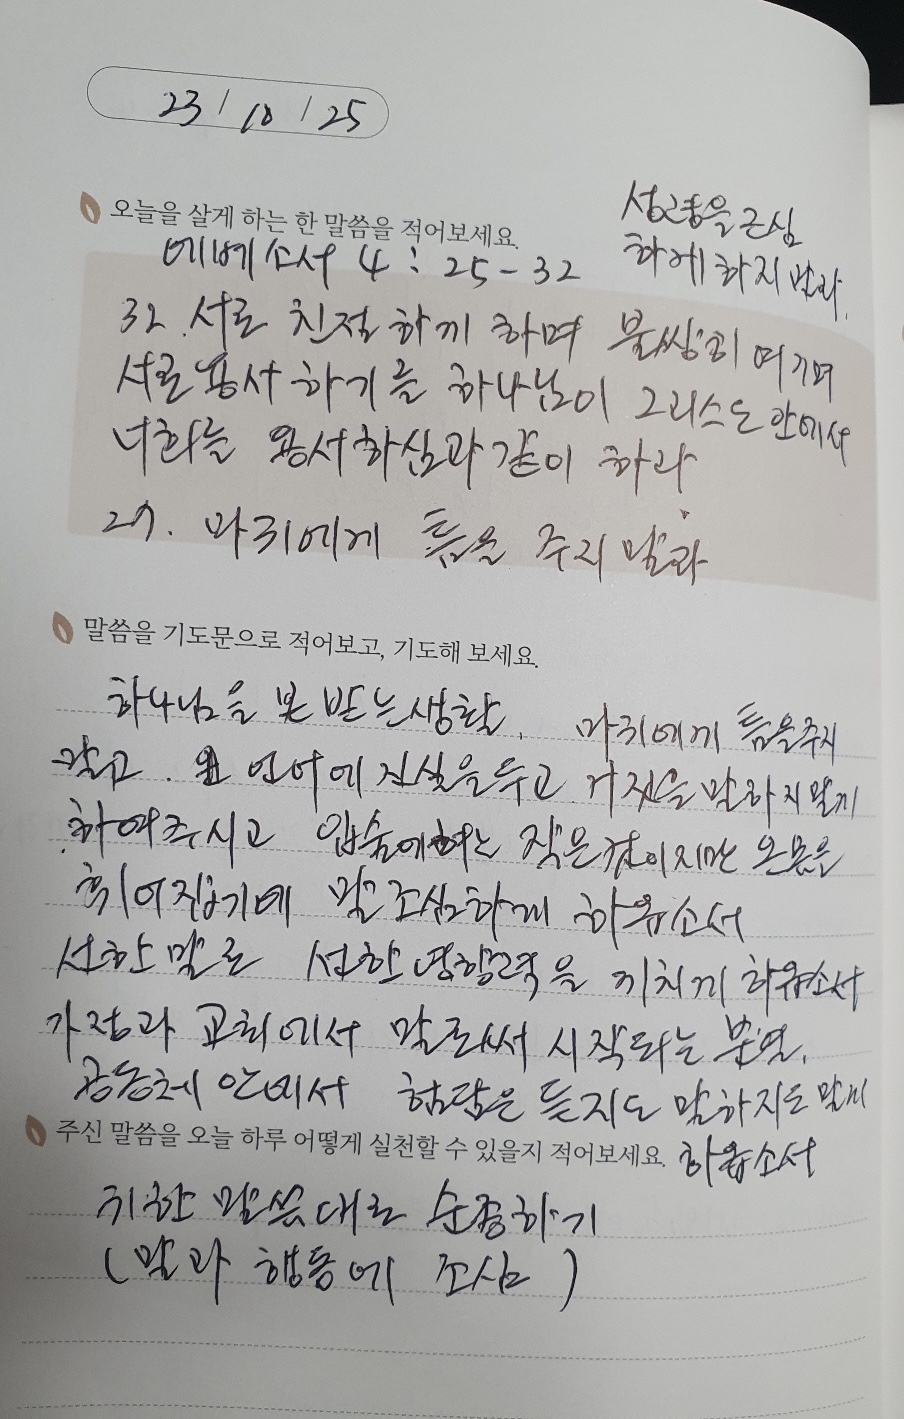 23 / 10 / 25
오늘을 살게 하는 한 말씀을 적어보세요.
성령을 근심
하게 하지 말라.
에베소서 4 : 25 - 32
32. 서로 친절하게 하며 불쌍히 여기며
서로 용서하기를 하나님이 그리스도 안에서
너희를 용서하심과 같이 하라
27. 마귀에게 틈을 주지 말라
말씀을 기도문으로 적어보고, 기도해 보세요.
하나님을 본받는 생활, 마귀에게 틈을 주지
말고. 언어에 진실을 두고 거짓을 말하지 말게
하여주시고 입술에 혀는 작은 것이지만 온 몸은
휘어집기에 말조심하게 하옵소서
선한 말로 선한 영향력을 끼치게 하옵소서
가정과 교회에서 말로써 시작되는 분열,
공동체 안에서 험담은 듣지도 말하지도 말게
하옵소서
주신 말씀을 오늘 하루 어떻게 실천할 수 있을지 적어보세요.
귀한 말씀대로 순종하기
(말과 행동에 조심)